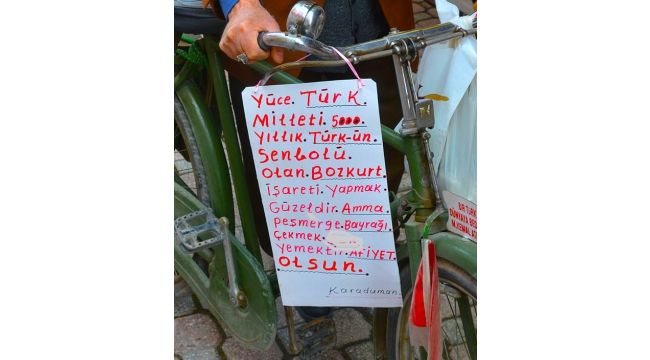 Yüce. Türk.
Milleti. 5000.
Yıllık. Türk-ün.
Senbolü.
Olan. Bozkurt.
İşareti. Yapmak.
Güzeldir. Amma.
Peşmerge. Bayrağı.
Çekmek.
Yemektir. AFİYET.
Olsun.
Karaduman.
BİR TÜRK
DÜNYAYA BEDE
M.KEMAL A